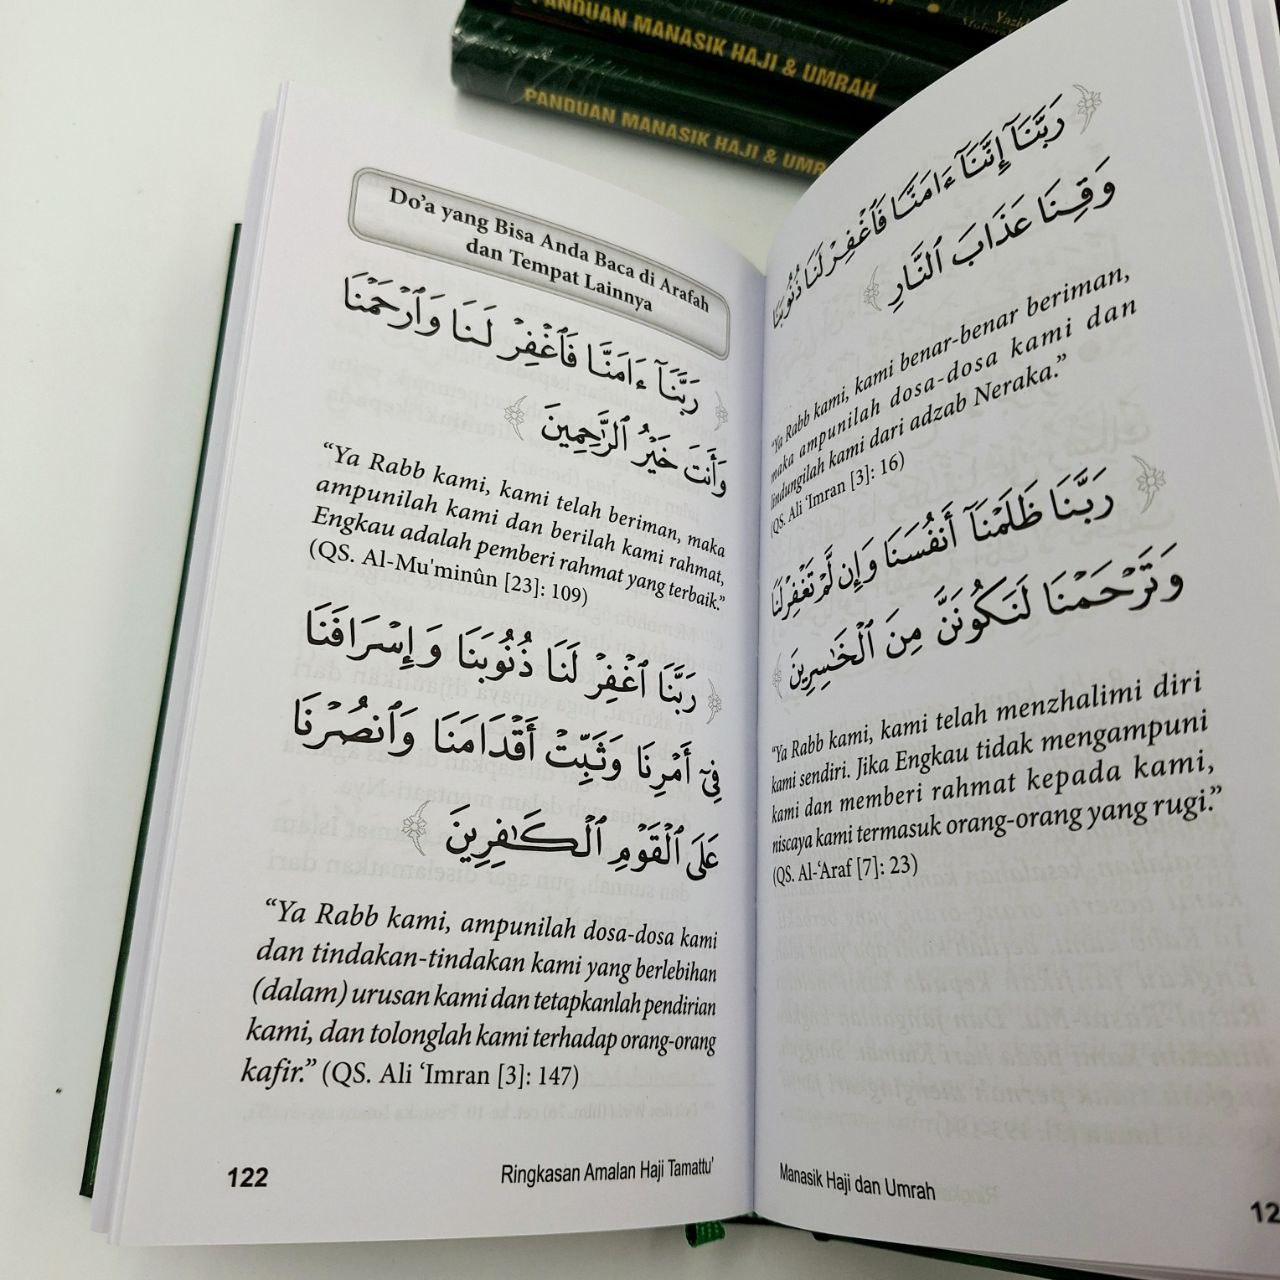 PANDUAN MANASIK HAJI & UMRAH
PANDUAN MANASIK HAJI & UMR
Do’a yang Bisa Anda Baca di Arafah
dan Tempat Lainnya
رَبَّنَآ ءَامَنَّا فَٱغْفِرْ لَنَا وَٱرْحَمْنَا
وَأَنتَ خَيْرُ ٱلرَّٰحِمِينَ
“Ya Rabb kami, kami telah beriman, maka
ampunilah kami dan berilah kami rahmat,
Engkau adalah pemberi rahmat yang terbaik.”
(QS. Al-Mu'minûn [23]: 109)
رَبَّنَا ٱغْفِرْ لَنَا ذُنُوبَنَا وَإِسْرَافَنَا
فِىٓ أَمْرِنَا وَثَبِّتْ أَقْدَامَنَا وَٱنصُرْنَا
عَلَى ٱلْقَوْمِ ٱلْكَٰفِرِينَ
“Ya Rabb kami, ampunilah dosa-dosa kami
dan tindakan-tindakan kami yang berlebihan
(dalam) urusan kami dan tetapkanlah pendirian
kami, dan tolonglah kami terhadap orang-orang
kafir.” (QS. Ali ‘Imran [3]: 147)
122
Ringkasan Amalan Haji Tamattu'
رَبَّنَآ إِنَّنَآ ءَامَنَّا فَٱغْفِرْ لَنَا ذُنُوبَنَا
وَقِنَا عَذَابَ ٱلنَّارِ
“Ya Rabb kami, kami benar-benar beriman,
maka ampunilah dosa-dosa kami dan
lindungilah kami dari adzab Neraka.”
(QS. Ali ‘Imran [3]: 16)
رَبَّنَا ظَلَمْنَآ أَنفُسَنَا وَإِن لَّمْ تَغْفِرْ لَنَا
وَتَرْحَمْنَا لَنَكُونَنَّ مِنَ ٱلْخَٰسِرِينَ
“Ya Rabb kami, kami telah menzhalimi diri
kami sendiri. Jika Engkau tidak mengampuni
kami dan memberi rahmat kepada kami,
niscaya kami termasuk orang-orang yang rugi.”
(QS. Al-‘Araf [7]: 23)
Manasik Haji dan Umrah
12